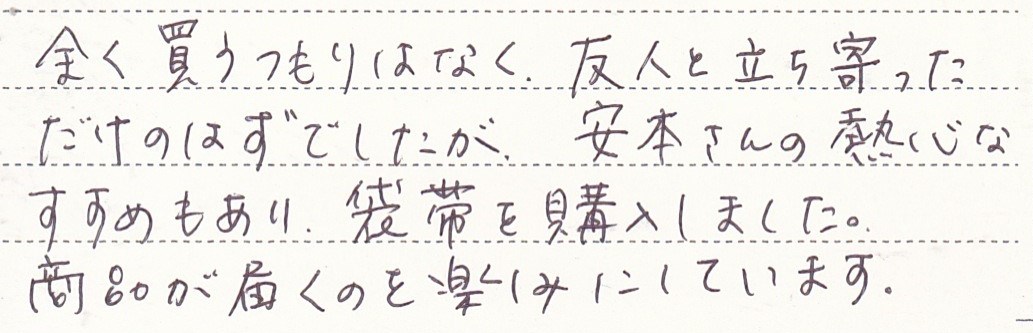 全く買うつもりはなく、友人と立ち寄った
だけのはずでしたが、安本さんの熱心な
すすめもあり、袋帯を購入しました。
商品が届くのを楽しみにしています。